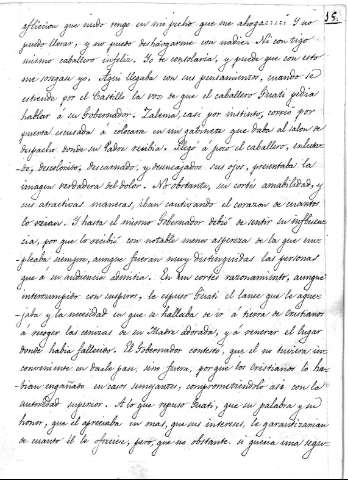 15.
afliccion que nudo tengo en mi pecho que me ahoga!!!! Y no
puedo llorar, y no puedo deshaogarme con nadie. Ni con tigo
mismo caballero infeliz. Yo te consolaria, y puede que con esto
me consolara yo. Aqui llegaba con sus pensamientos, cuando se
estiende por el Castillo la voz de que el caballero Guati pedia
hablar á su Gobernador. Zulema, casi por instinto, corrió por
puerta escusada á colocarse en un gabinete que daba al salon de
despacho donde su Padre recibia. Llegó á poco el caballero, enluta-
do, descolorido, descarnado, y desencajados sus ojos, presentaba la
imagen verdadera del dolor. No obstante, su cortés amabilidad, y
sus atractivas maneras, iban cautivando el corazon de cuantos
lo veian. Y hasta el mismo Gobernador debió de sentir su influen-
cia, por que lo recibió con notable menos aspereza de la que em-
pleaba siempre, aunque fueran muy distinguidas las personas
que á su audiencia admitia. En un cortés razonamiento, aunque
interrumpido con suspiros, le espresó Guati el lance que le aque-
jaba y la necesidad en que se hallaba de ir á tierra de Cristianos
á recoger las cenizas de su Madre adorada, y á venerar el lugar
donde habia fallecido. El Gobernador contestó, que él no tuviera in-
conveniente en darle pase, sino fuera, por que los Cristianos lo ha-
bian engañado en casos semejantes, comprometiendolo asi con la
autoridad superior. A lo que repuso Guati, que su palabra y su
honor, que él apreciaba en mas, que sus intereses, le garantizaran
de cuanto él le ofrecia, pero, que no obstante, si queria una segu-